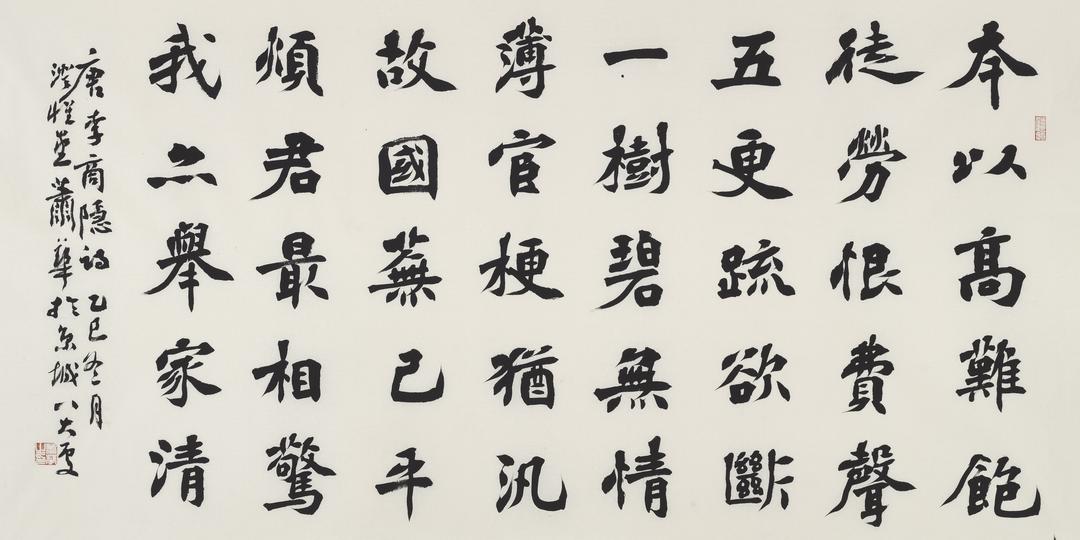 本以高難飽
徒勞恨費聲
五更疏欲斷
一樹碧無情
薄官梗猶汎
故國蕪已平
煩君最相驚
我亦舉家清
唐李商隱詩 乙巳冬月
蕭華於京城八大處